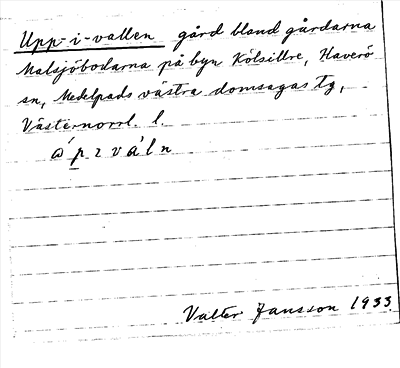 Upp-i-vallen gård bland gårdarna
Malsjöbodarna på byn Kölsillre, Haverö
sn, Medelpads västra domsagas tg,
Västernorrl. l.
Valter Jansson 1933